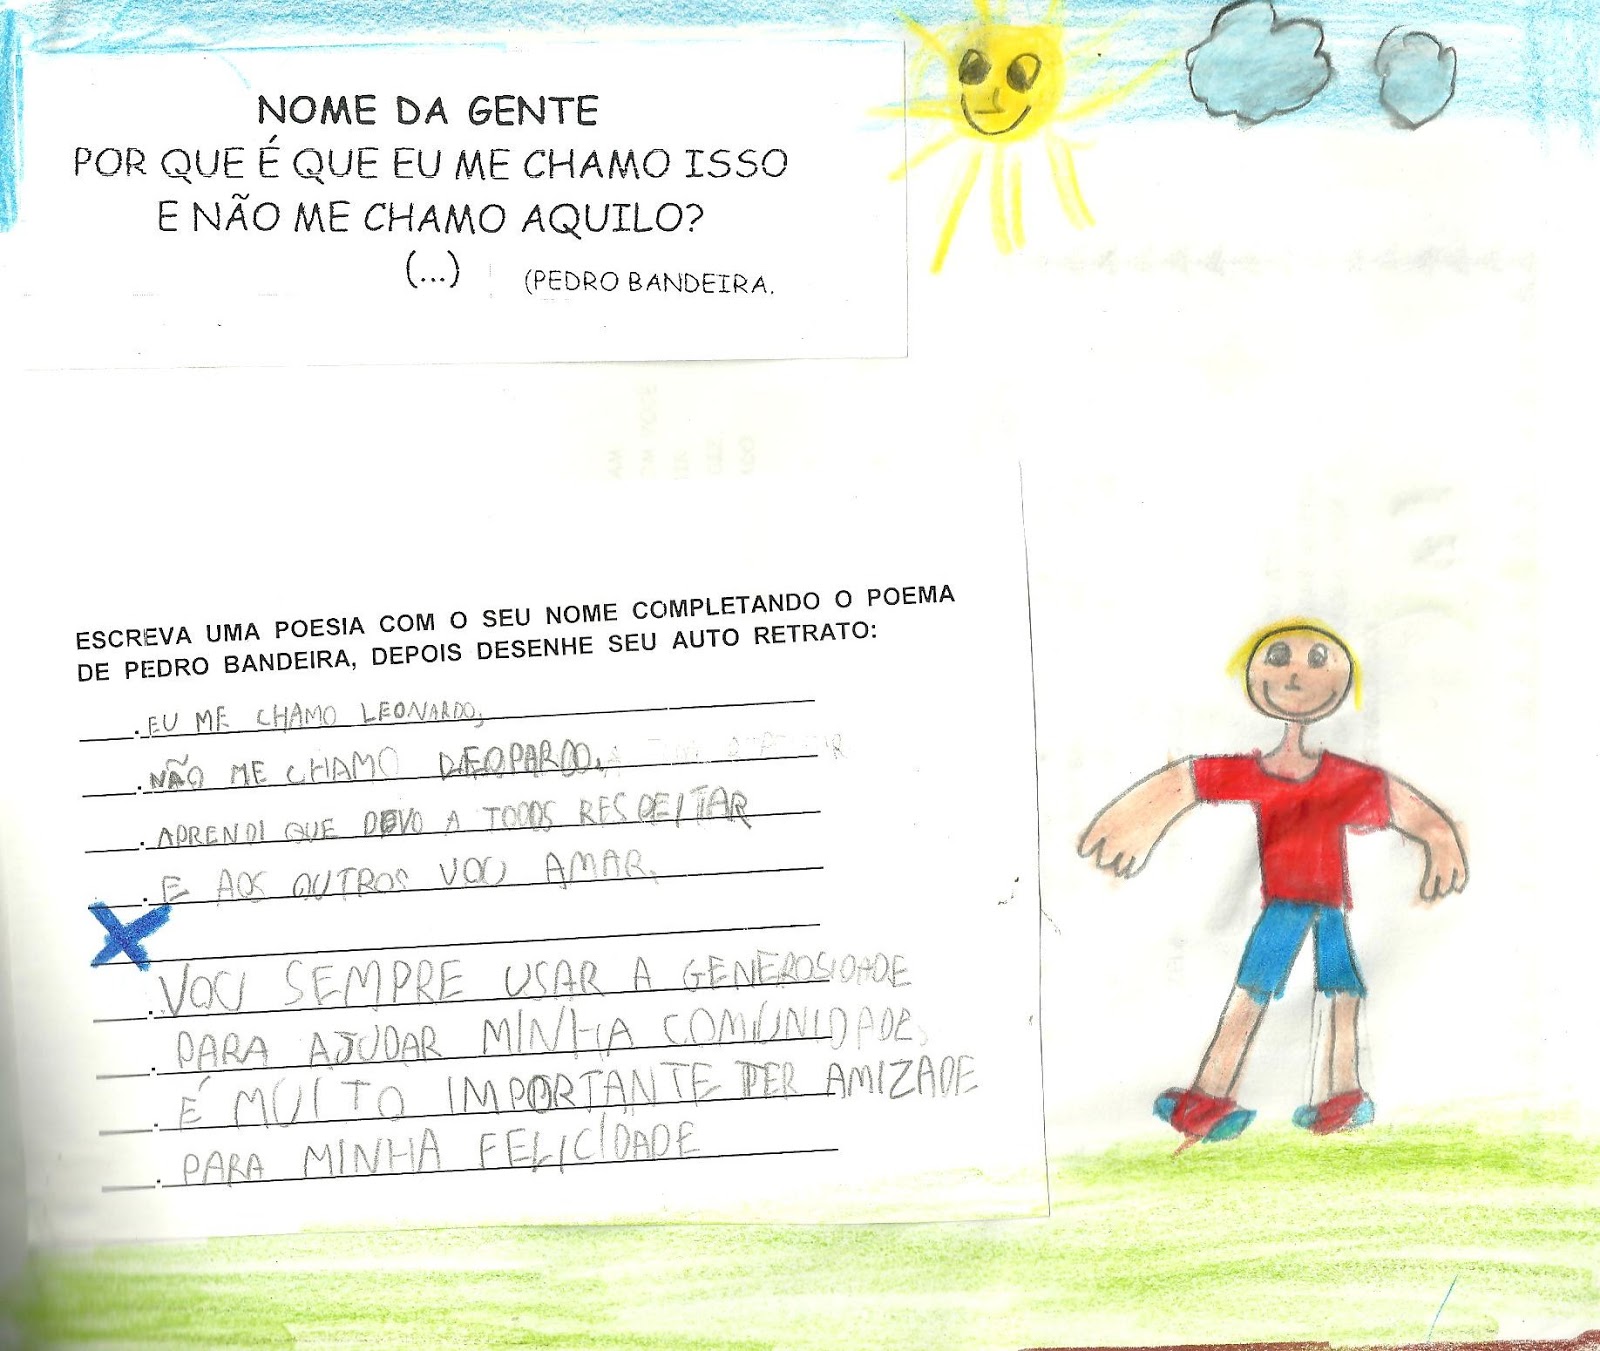 NOME DA GENTE
POR QUE É QUE EU ME CHAMO ISSO
E NÃO ME CHAMO AQUILO?
(...) (PEDRO BANDEIRA.
ESCREVA UMA POESIA COM O SEU NOME COMPLETANDO O POEMA
DE PEDRO BANDEIRA, DEPOIS DESENHE SEU AUTO RETRATO:
EU ME CHAMO LEONARDO,
NÃO ME CHAMO LEOPARDO.
APRENDI QUE DEVO A TODOS RESPEITAR
E AOS OUTROS VOU AMAR.
VOU SEMPRE USAR A GENEROSIDADE
PARA AJUDAR MINHA COMUNIDADE,
É MUITO IMPORTANTE TER AMIZADE
PARA MINHA FELICIDADE